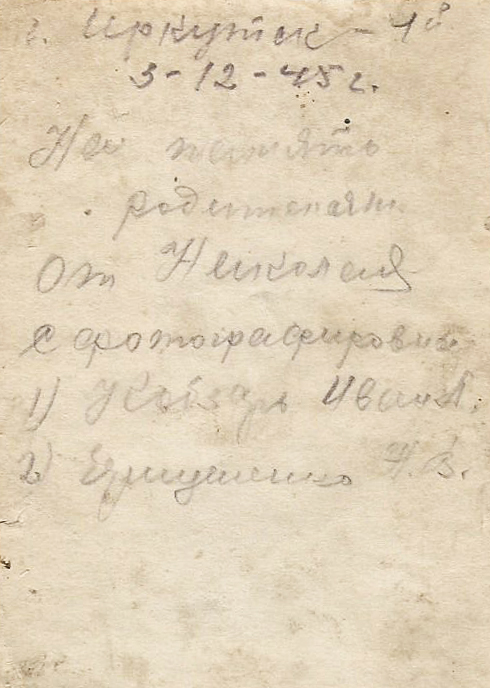 г. Иркутск - 1й
3-12-45 г.
На память
родителям
От Николая
Сфотографировались
1) Кобзарь Иван
2) Н.В.